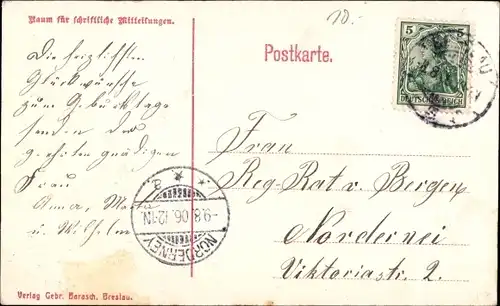 Raum für schriftliche Mitteilungen.
10.-
Postkarte.
5 5
DEUTSCHES REICH
Die herzlichsten
Glückwünsche
zum Geburtstage
senden der
geehrten gnädigen
Frau
Anna, Marta
u. Wilhelm
NORDERNEY
-9.8.06.12-1N.
Frau
Reg-Rat v. Bergen
Nordernei
Viktoriastr. 2.
Verlag Gebr. Barasch, Breslau.